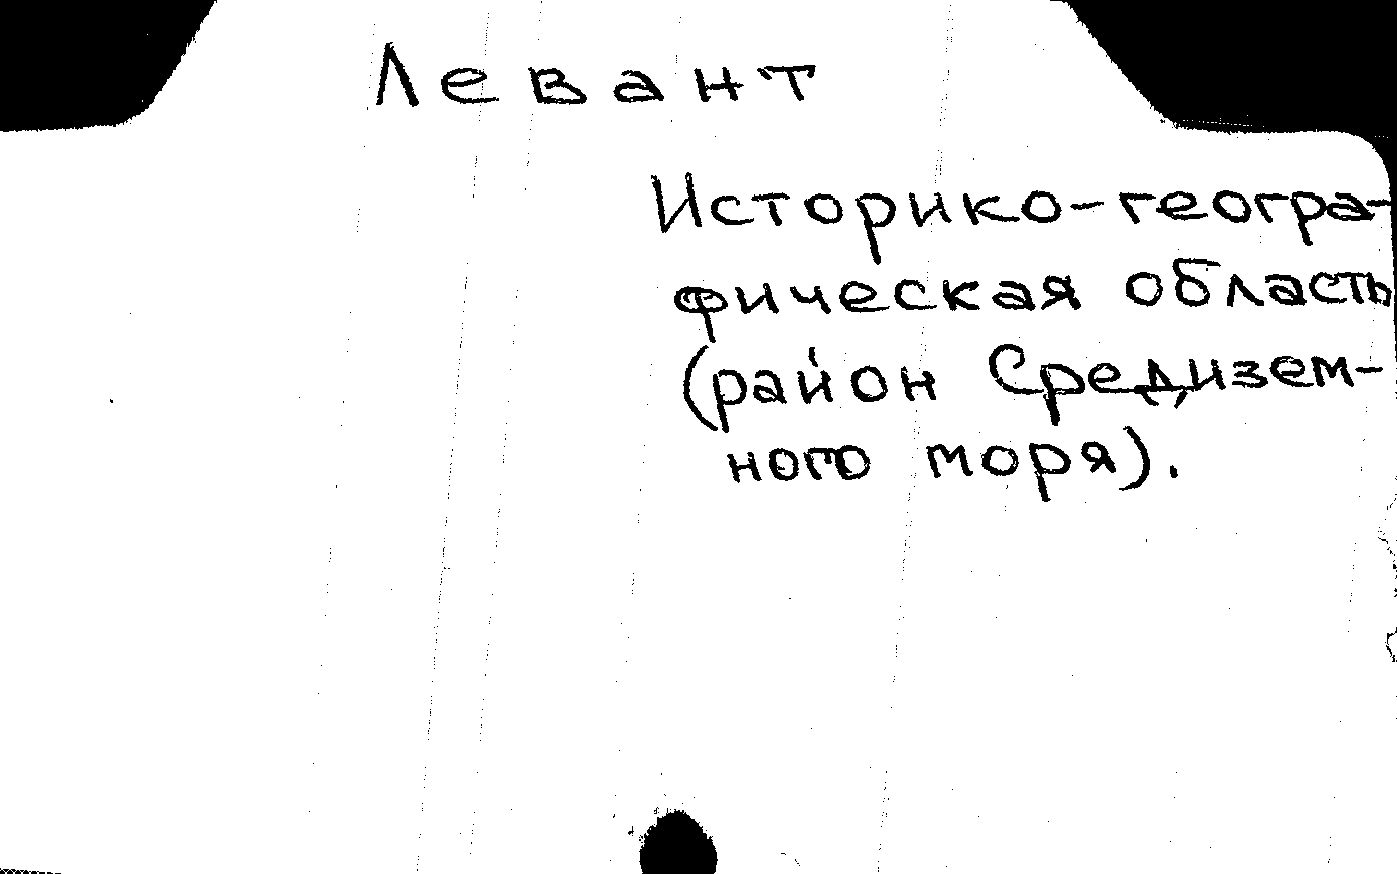 Левант
Историко-геогра-
фическая область
(район Средизем-
ного моря).